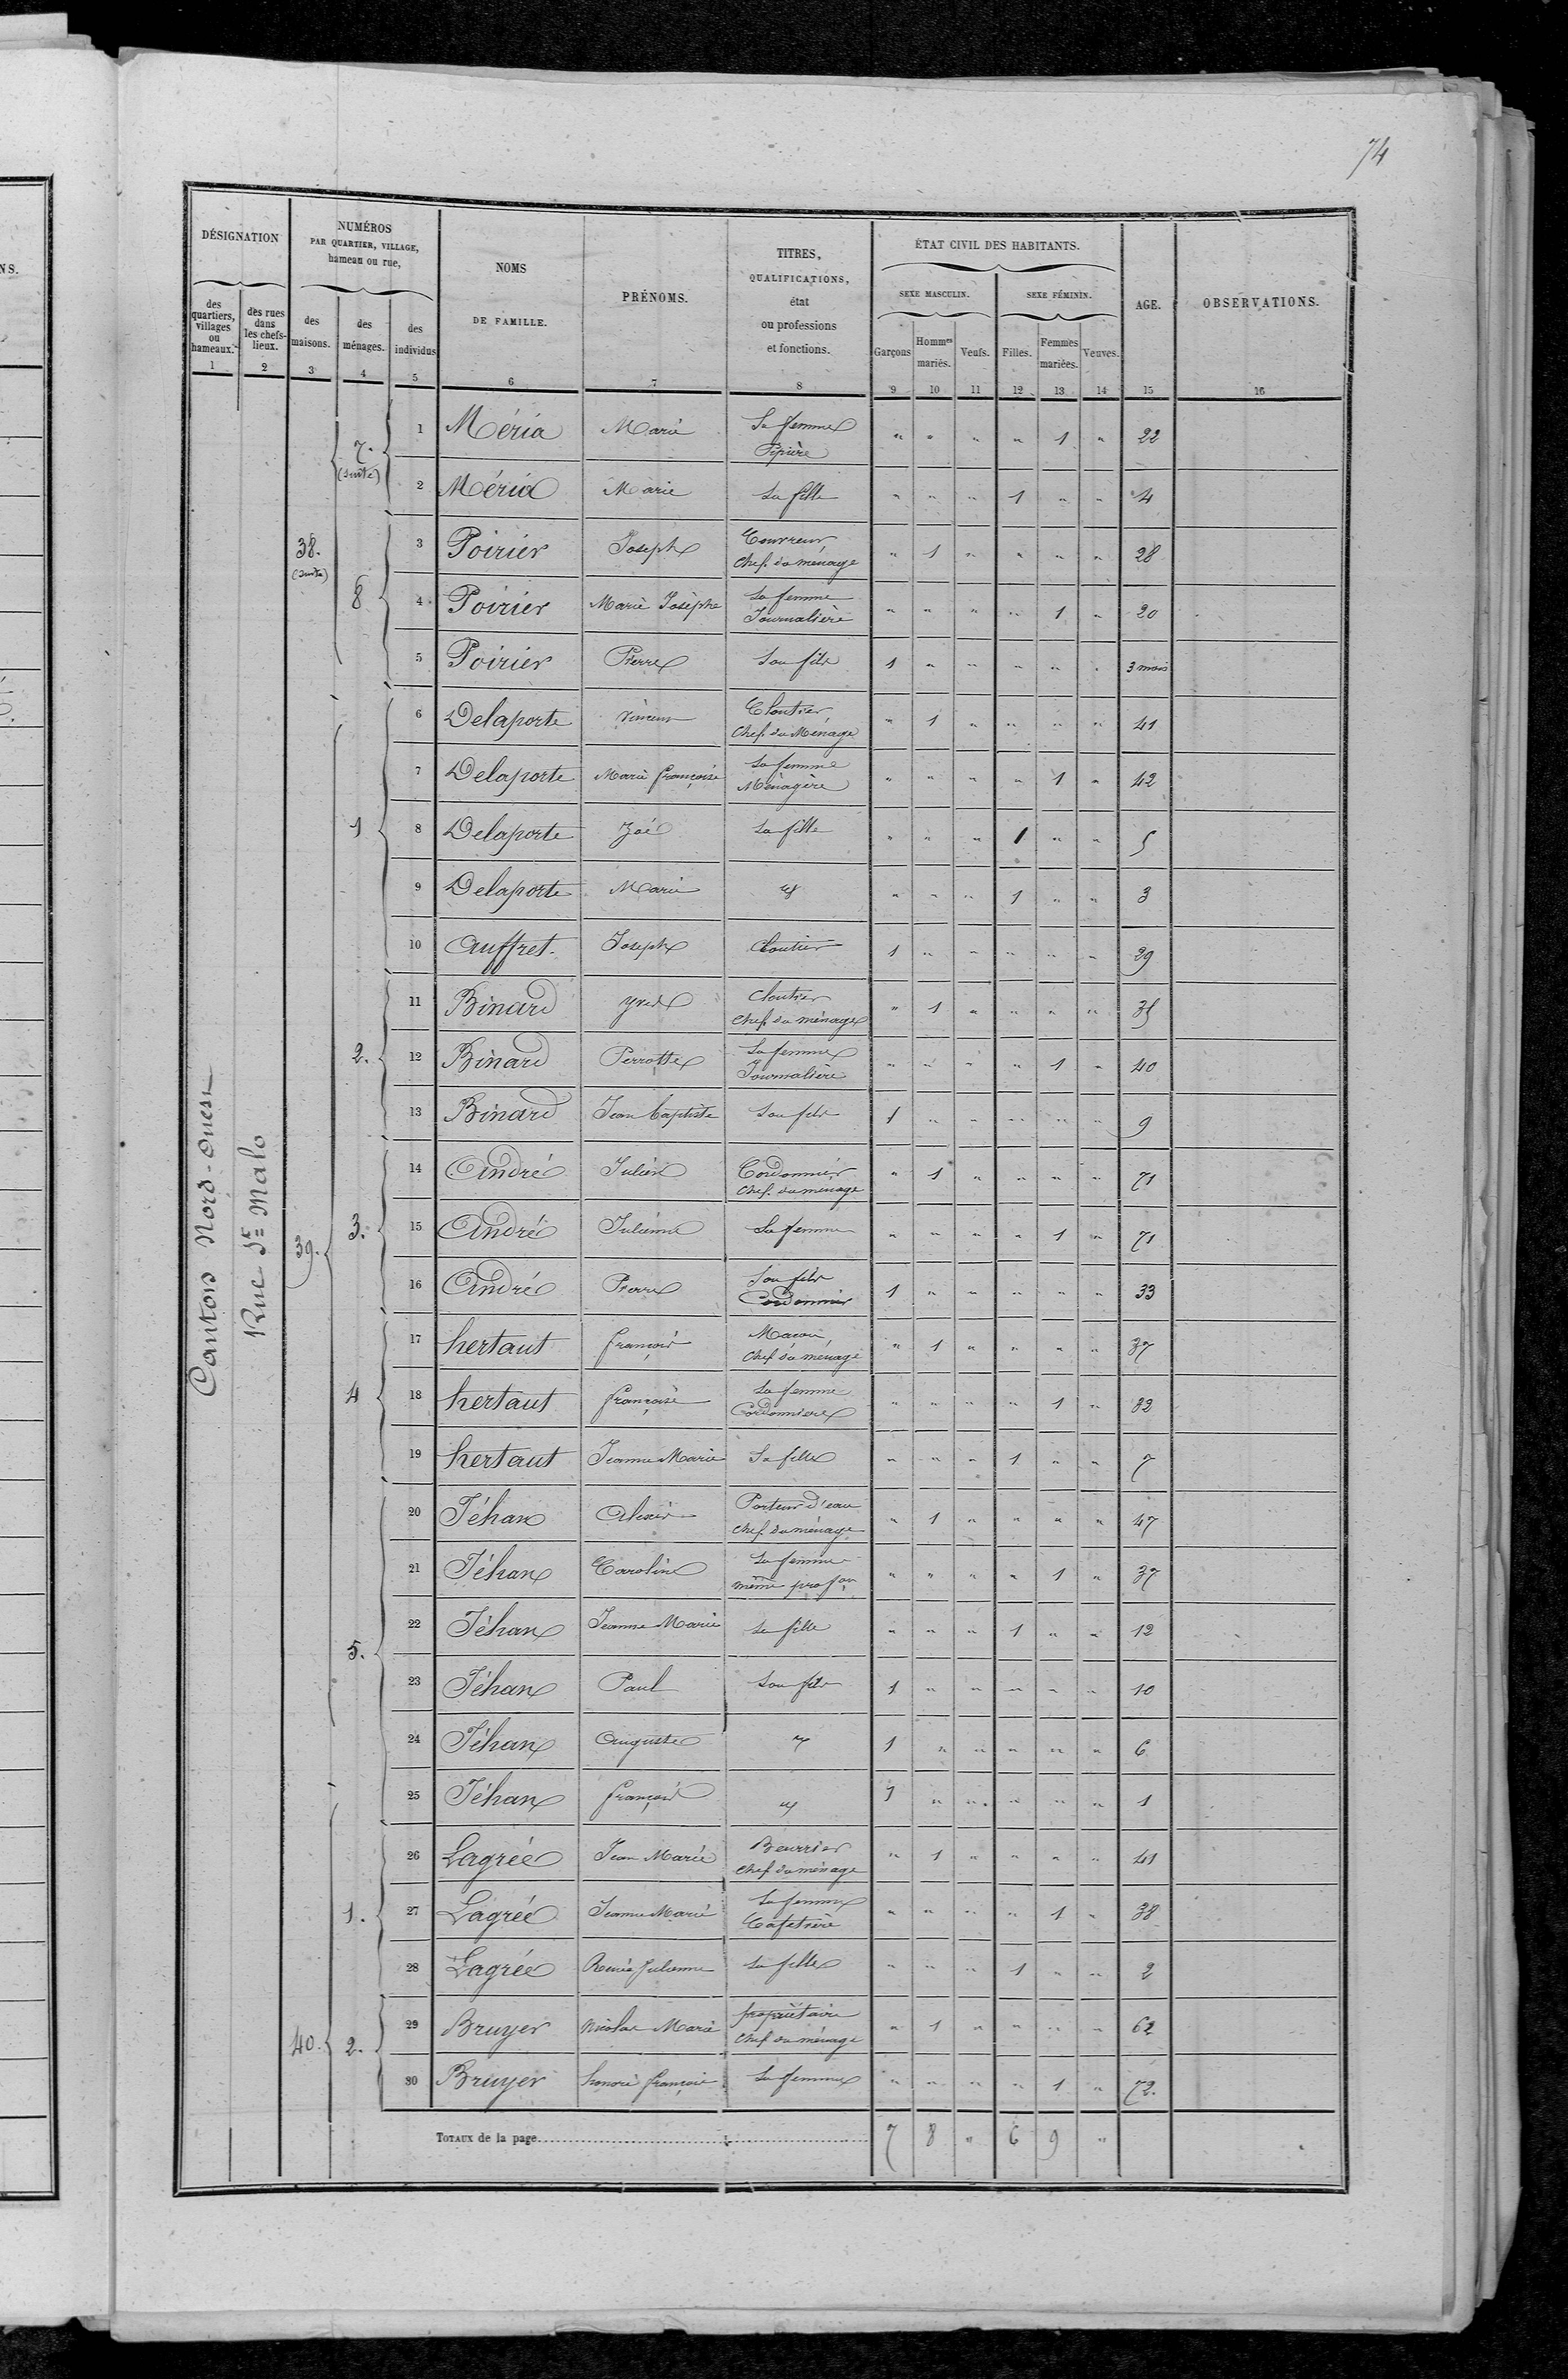 74
DÉSIGNATION
NUMÉROS PAR QUARTIER, VILLAGE, hameau ou rue,
NOMS DE FAMILLE.
PRÉNOMS.
TITRES, QUALIFICATIONS, état ou professions et fonctions.
ÉTAT CIVIL DES HABITANTS.
AGE.
OBSERVATIONS.
des quartiers, villages ou hameaux.
des rues dans les chefs-lieux.
des maisons.
des ménages.
des individus
SEXE MASCULIN.
SEXE FÉMININ.
Garçons
Hommes mariés.
Veufs.
Filles.
Femmes mariées.
Veuves.
1 2 3 4 5 6 7 8 9 10 11 12 13 14 15 16
Canton Nord-Ouest
Rue St Malo
38. (suite)
7. (suite)
1 Méria Marie Sa femme Pipière " " " " 1 " 22
2 Méria Marie Sa fille " " " 1 " " 4
8
3 Poirier Joseph Couvreur Chef du ménage " 1 " " " " 28
4 Poirier Marie Josèphe Sa femme Journalière " " " " 1 " 20
5 Poirier Pierre Son fils 1 " " " " " 3 mois
39.
1
6 Delaporte Vincent Cloutier Chef du Ménage " 1 " " " " 41
7 Delaporte Marie françoise Sa femme Ménagère " " " " 1 " 42
8 Delaporte Zoé Sa fille " " " 1 " " 5
9 Delaporte Marie " " " 1 " " 3
10 Auffret. Joseph Cloutier 1 " " " " " 29
2.
11 Binard Yves Cloutier Chef du ménage " 1 " " " " 35
12 Binard Perrotte Sa femme Journalière " " " " 1 " 40
13 Binard Jean baptiste Son fils 1 " " " " " 9
3.
14 André Julien Cordonnier Chef du ménage " 1 " " " " 71
15 André Julienne Sa femme " " " " 1 " 71
16 André Pierre Son fils Cordonnier 1 " " " " " 33
4
17 hertaut françois Maçon, Chef du ménage " 1 " " " " 37
18 hertaut françoise Sa femme Cordonnière " " " " 1 " 32
19 hertaut Jeanne Marie Sa fille " " " 1 " " 7
5.
20 Jéhan Alexis Porteur d'eau Chef du ménage " 1 " " " " 47
21 Jéhan Caroline Sa femme même profon " " " " 1 " 37
22 Jéhan Jeanne Marie Sa fille " " " 1 " " 12
23 Jéhan Paul Son fils 1 " " " " " 10
24 Jéhan Auguste 1 " " " " " 6
25 Jéhan françois 1 " " " " " 1
40.
1.
26 Lagrée Jean Marie Beurrier Chef du ménage " 1 " " " " 41
27 Lagrée Jeanne Marie Sa femme Cafetière " " " " 1 " 38
28 Lagrée Renée Julienne Sa fille " " " 1 " " 2
2.
29 Bruyer Nicolas Marie propriétaire Chef du ménage " 1 " " " " 62
30 Bruyer honoré françoise Sa femme " " " " 1 " 72.
TOTAUX de la page 7 8 " 6 9 "